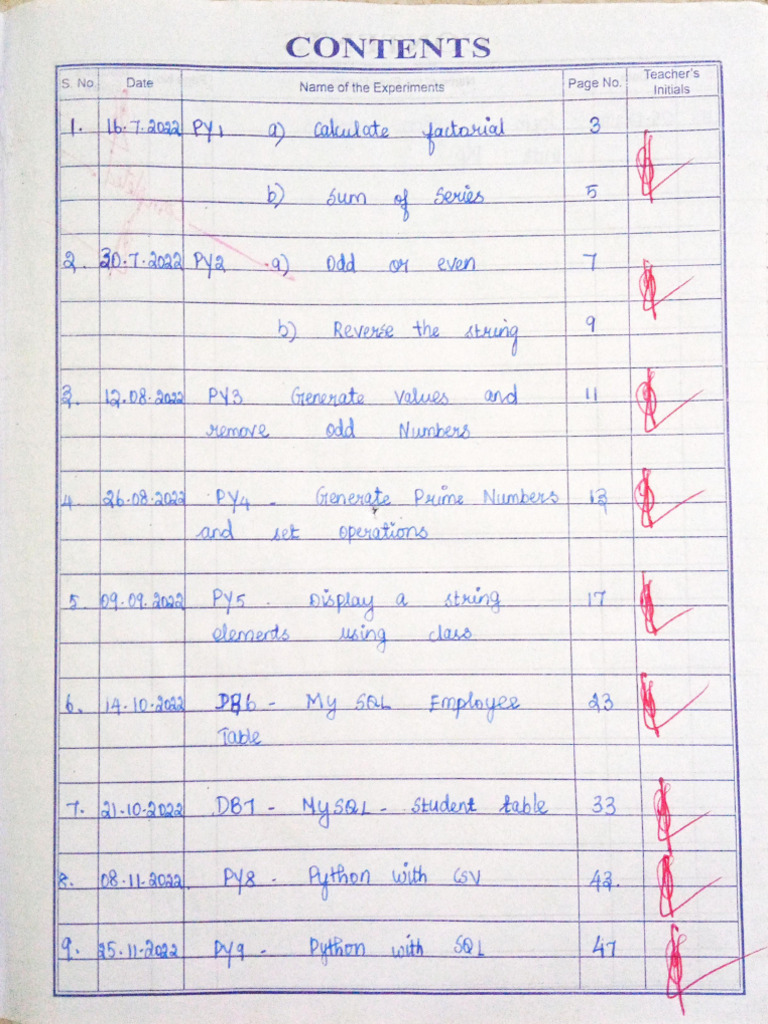 CONTENTS
S. No. Date Name of the Experiments Page No. Teacher's Initials
1. 16.7.2022 PY1 a) Calculate factorial 3
b) Sum of Series 5
2. 30.7.2022 PY2 a) Odd or even 7
b) Reverse the string 9
3. 12.08.2022 PY3 Generate values and 11
remove odd Numbers
4. 26.08.2022 PY4 - Generate Prime Numbers 13
and set operations
5. 09.09.2022 PY5 - Display a string 17
elements using class
6. 14.10.2022 DB6 - My SQL Employee 23
Table
7. 21.10.2022 DB7 - MySQL - Student table 33
8. 08.11.2022 PY8 - Python with CSV 43.
9. 25.11.2022 PY9 - Python with SQL 47